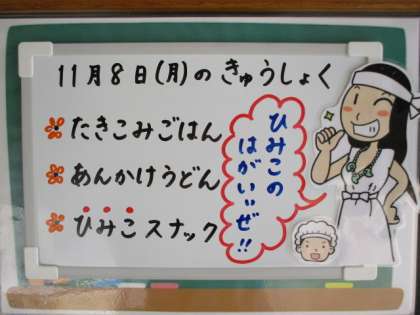 11月8日(月)の きゅうしょく
たきこみごはん
あんかけうどん
ひみこスナック
ひみこの
はがい〃ぜ!!